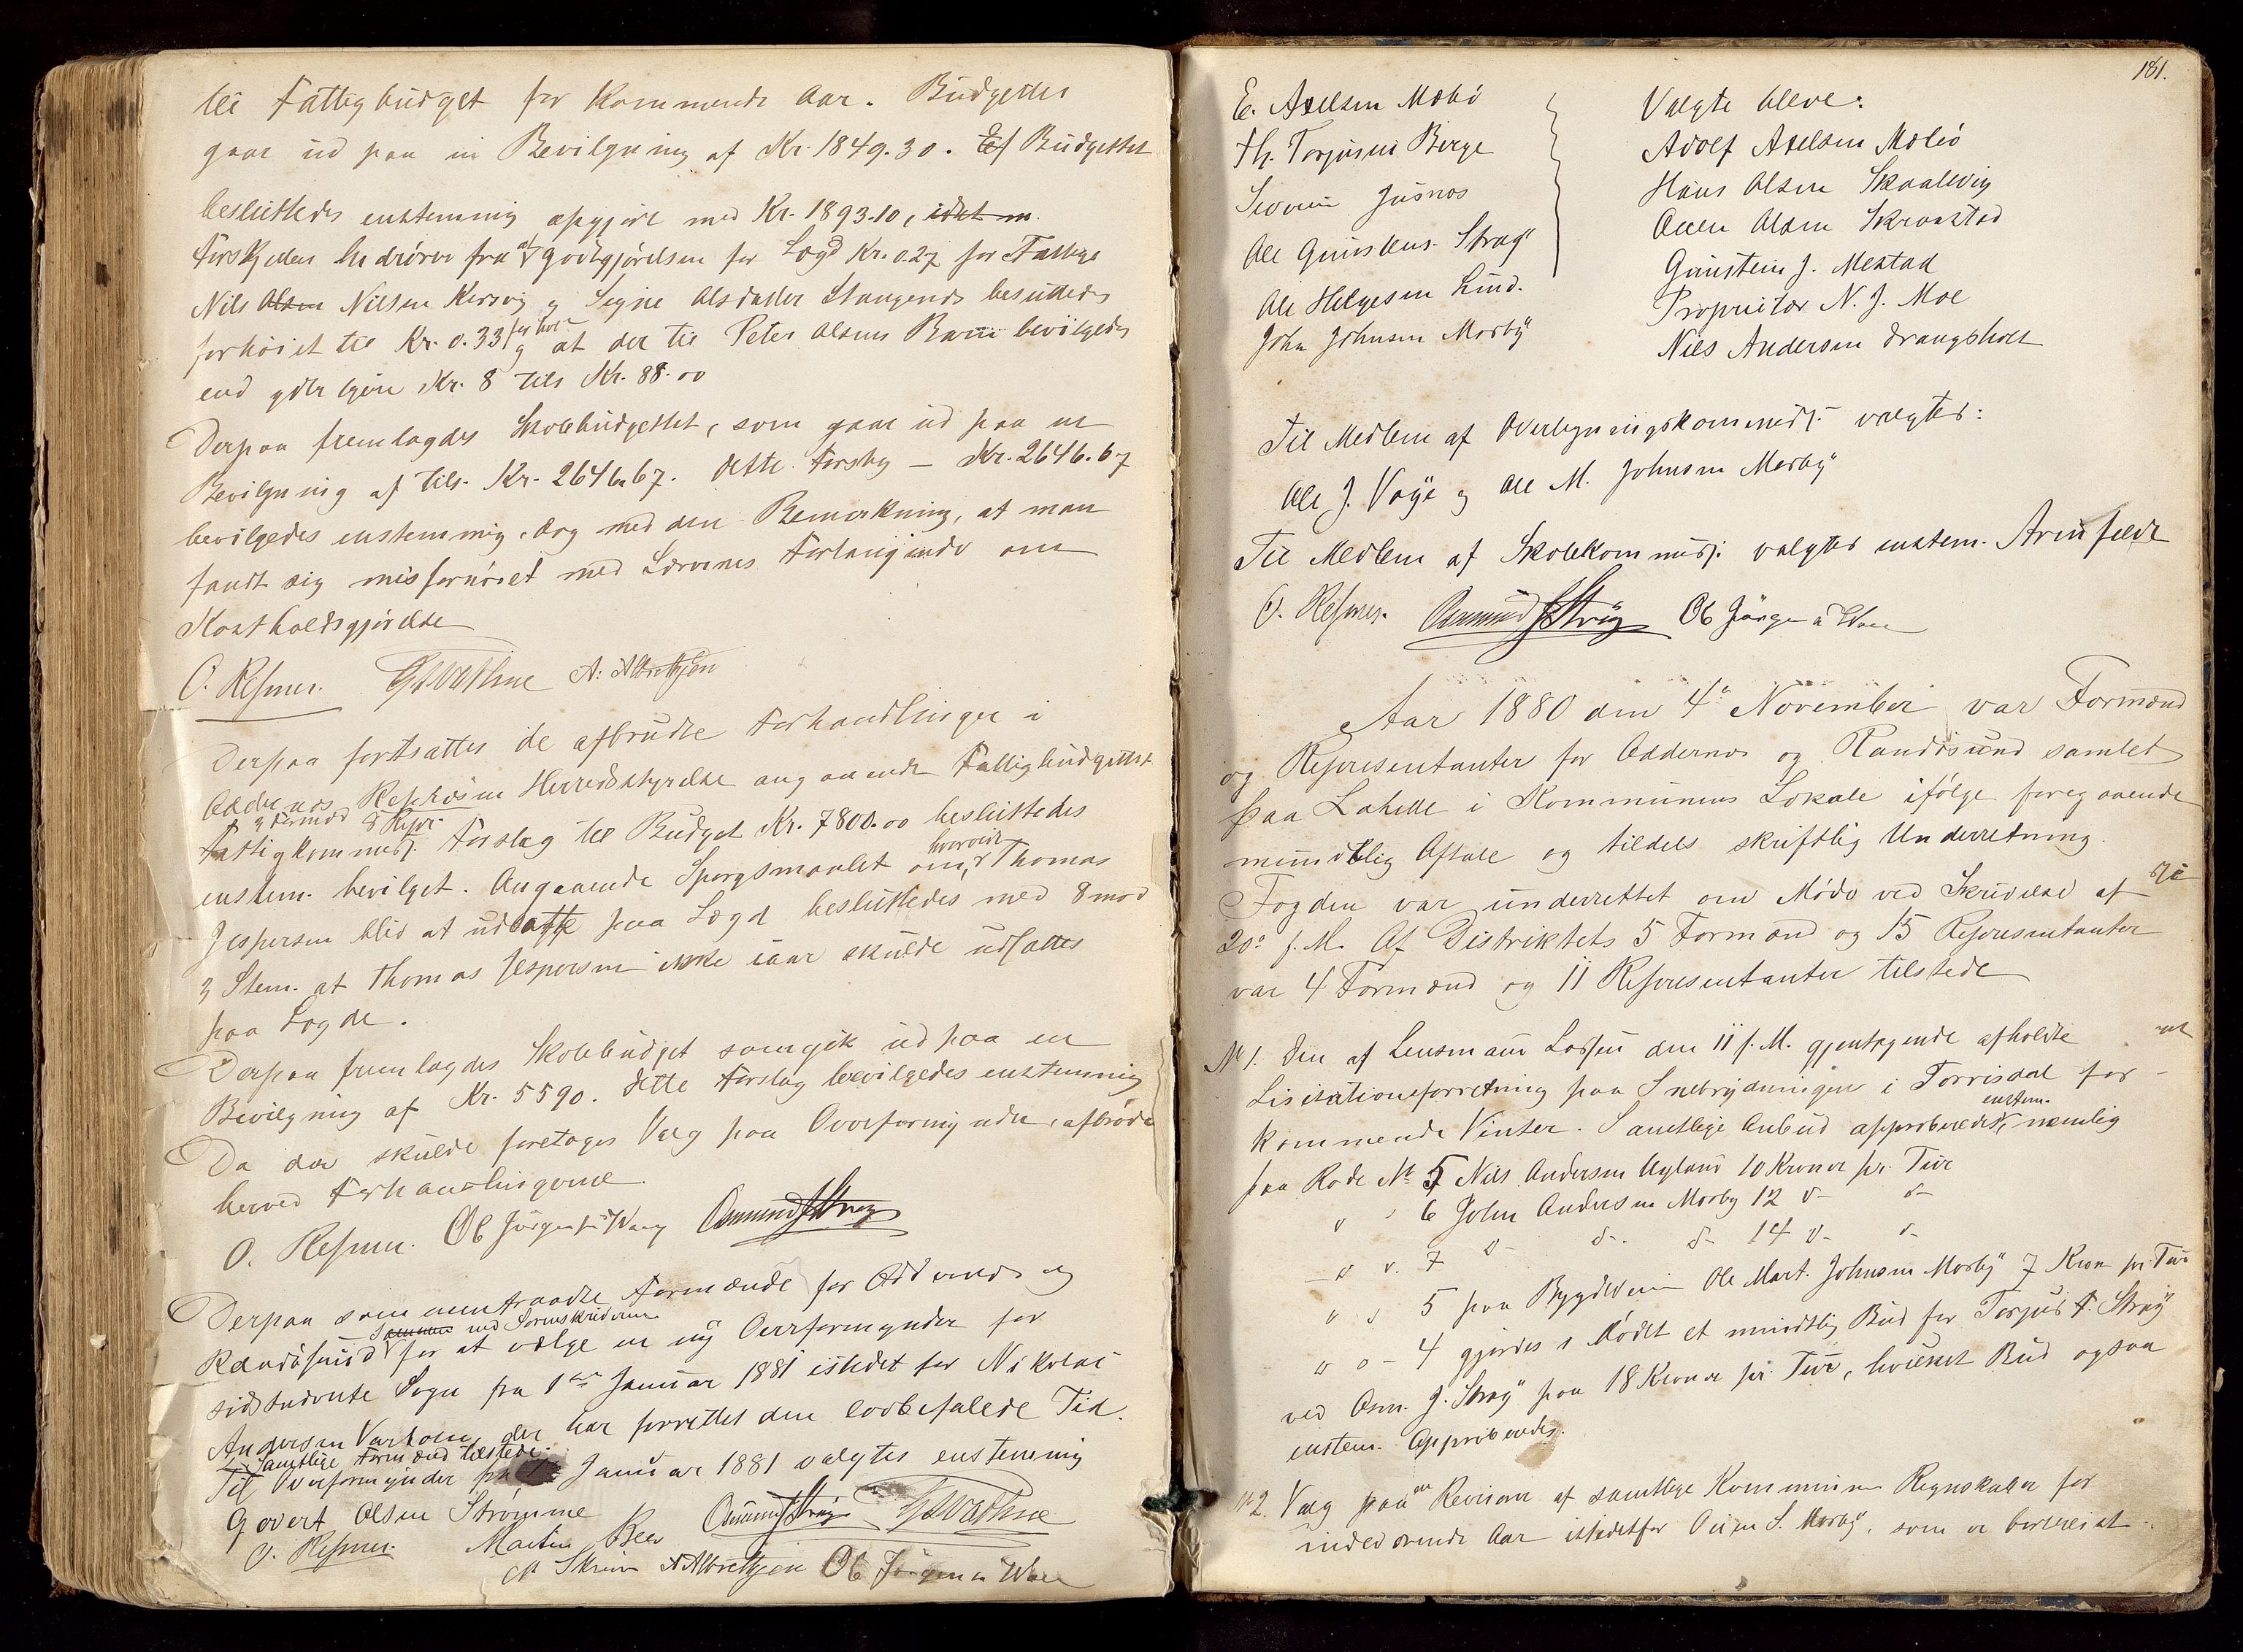 til Fattigbudget for kommende Aar. Budgettet
gaar ud paa en Bevilgning af Kr. 1849.30. Budgettet
besluttedes enstemmig opgjort med Kr. 1893.10, idet
Forskjellen hidrører fra at godtgjørelsen for Lægd Kr. 0.27 for Fattige
Nils Olsen Nilsen Kjersvig og Signe Olsdatter Stangends besluttedes
forhøiet til Kr. 0.33 for hver og at der til Peter Olsens Barn bevilgedes
end yderligere Kr. 8 tils Kr. 88.00
Derpaa fremlagdes Skolebudgettet, som gaar ud paa en
Bevilgning af tils. Kr. 2646.67. Dette Forslag – Kr. 2646.67
bevilgedes enstemmig, dog med den Bemerkning, at man
fandt sig misfornøiet med Lærernes Forlangende om
Kostholdsgjørelse
O. Resmer. A: Albrethsen
Derpaa fortsattes de afbrudte Forhandlinger i
Oddernes Herredsstyrelse angaaende Fattigbudgettet
3 Formd 8 Repr.
Fattigkommisj. Forslag til Budget Kr. 7800.00 besluttedes
enstem. bevilget. Angaaende Spørgsmaalet om hvorvidt Thomas
Jespersen blev at udsætte paa Lægd besluttedes med 8 mod
3 Stem. at Thomas Jespersen ikke iaar skulde udsættes
paa Lægd.
Derpaa fremlagdes Skolebudget som gik ud paa en
Bevilgning af Kr. 5590. Dette Forslag bevilgedes enstemmig
Da der skulde foretages Valg paa Overformynder, afbrødes
herved Forhandlingerne.
O. Resmer. Ob Jörgensen Waag
Derpaa sammentraadte Formænde for Oddernes og
Randøsund sammen med Sorenskriveren for at vælge en ny Overformynder for
sidstnævnte Sogn fra 1ste Januar 1881 istedet for Nikolai
Andersen der har forrettet den lovbefalede Tid.
Samtlige Formænd tilstede.
Til Overformynder fra Januar 1881 valgtes enstemmig
Govert Olsen Strømme
O. Resmer. Martin Beer
A Albrethsen Ob Jörgensen
181.
E. Axelsen Mæbø
Th. Torjusen Berge
Severin Jusnæs
Ole Gunstens. Stray
Ole Helgesen Lund.
John Johnsen Mosby
Valgte bleve:
Adolf Axelsen Mæbø
Hans Olsen Skaalevig
Ole Olsen Skraastad
Gunstein J. Mestad
Proprietær N. J. Moe
Nils Andersen Drangsholt
Til Medlem af Overligningskommisj. valgtes:
Ole J. Vaye og Ole M. Johnsen Mosby
Til Medlem af Skolekommisj. valgtes enstem. Arnfeldt
O. Resmer. Osmund J Stray Ob Jörgensen
Aar 1880 den 4de November var Formænd
og Representanter for Oddernes og Randøsund samlet
paa Lahelle i Kommunens Lokale ifølge foregaaende
mundtlig Aftale og tildels skriftlig Underretning.
Fogden var underrettet om Møde ved Skrivelse af
20de f. M. Af Distriktets 5 Formænd og 15 Representanter
var 4 Formænd og 11 Representanter tilstede
No 1. Den af Lensmand Lassen den 11 f. M. gjentagende afholdte
Lisitationsforretning paa Snebrydningen i Torrisdal for
kommende Vinter. Samtlige Anbud approberedes enstem. nemlig
paa Rode No 5 Nils Andersen Ugland 10 Kroner pr. Tur
" " 6 John Andersen Mosby 12 d– d–
" " 7 d– d– d– 14 d– d–
" " 5 paa Bygdeveien Ole Mart. Johnsen Mosby 7 Kron pr. Tur
" " – 4 gjordes i Mødet et mundtlig Bud for Torjus F. Stray
ved Osm. J. Stray paa 18 Kroner pr. Tur, hvilket Bud ogsaa
enstem. Approberedes.
No 2. Valg paa en Revisor af samtlige Kommunens Regnskaber for
indeværende Aar istedetfor S. Mosby, som er bortreist